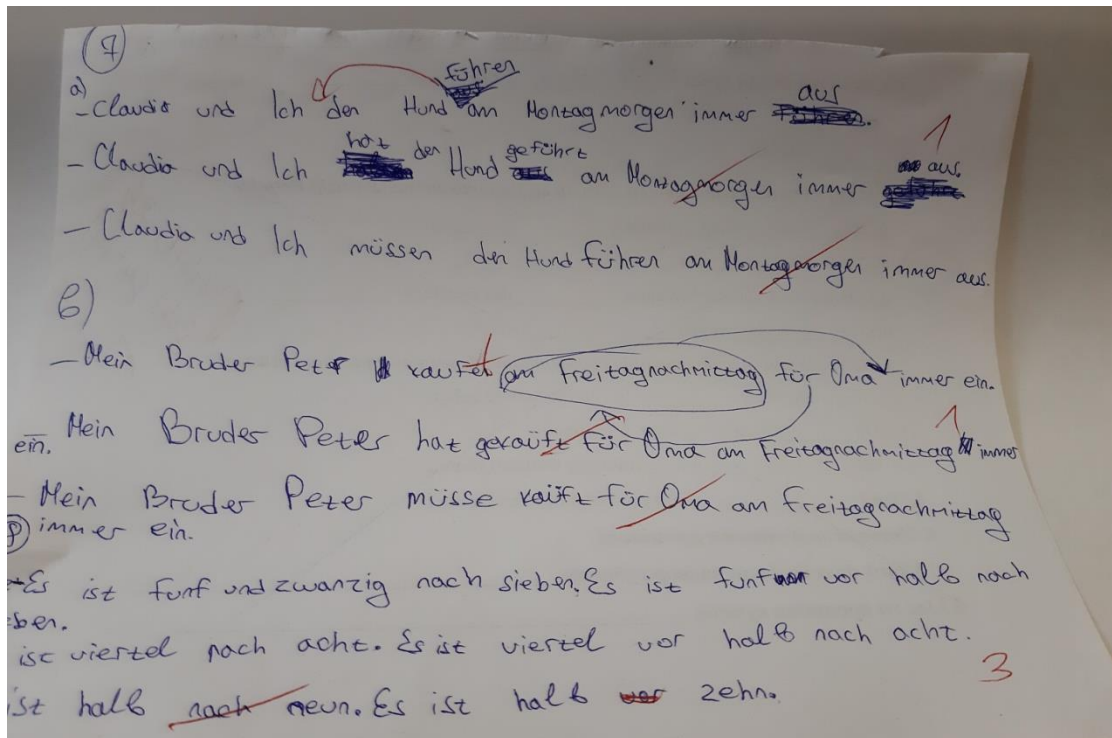 7
führen
a) - Claudia und Ich den Hund am Montagmorgen immer aus
- Claudia und Ich hat den Hund geführt am Montagmorgen immer aus. 1
- Claudia und Ich müssen den Hund führen am Montagmorgen immer aus.
b)
- Mein Bruder Peter kaufet am Freitagnachmittag für Oma immer ein.
Mein Bruder Peter hat gekauft für Oma am Freitagnachmittag immer 1
ein.
- Mein Bruder Peter müsse kauft für Oma am Freitagnachmittag
immer ein.
8
- Es ist funf und zwanzig nach sieben. Es ist funf vor halb nach
ben.
ist viertel nach acht. Es ist viertel vor halb nach acht.
3
ist halb nach neun. Es ist halb zehn.